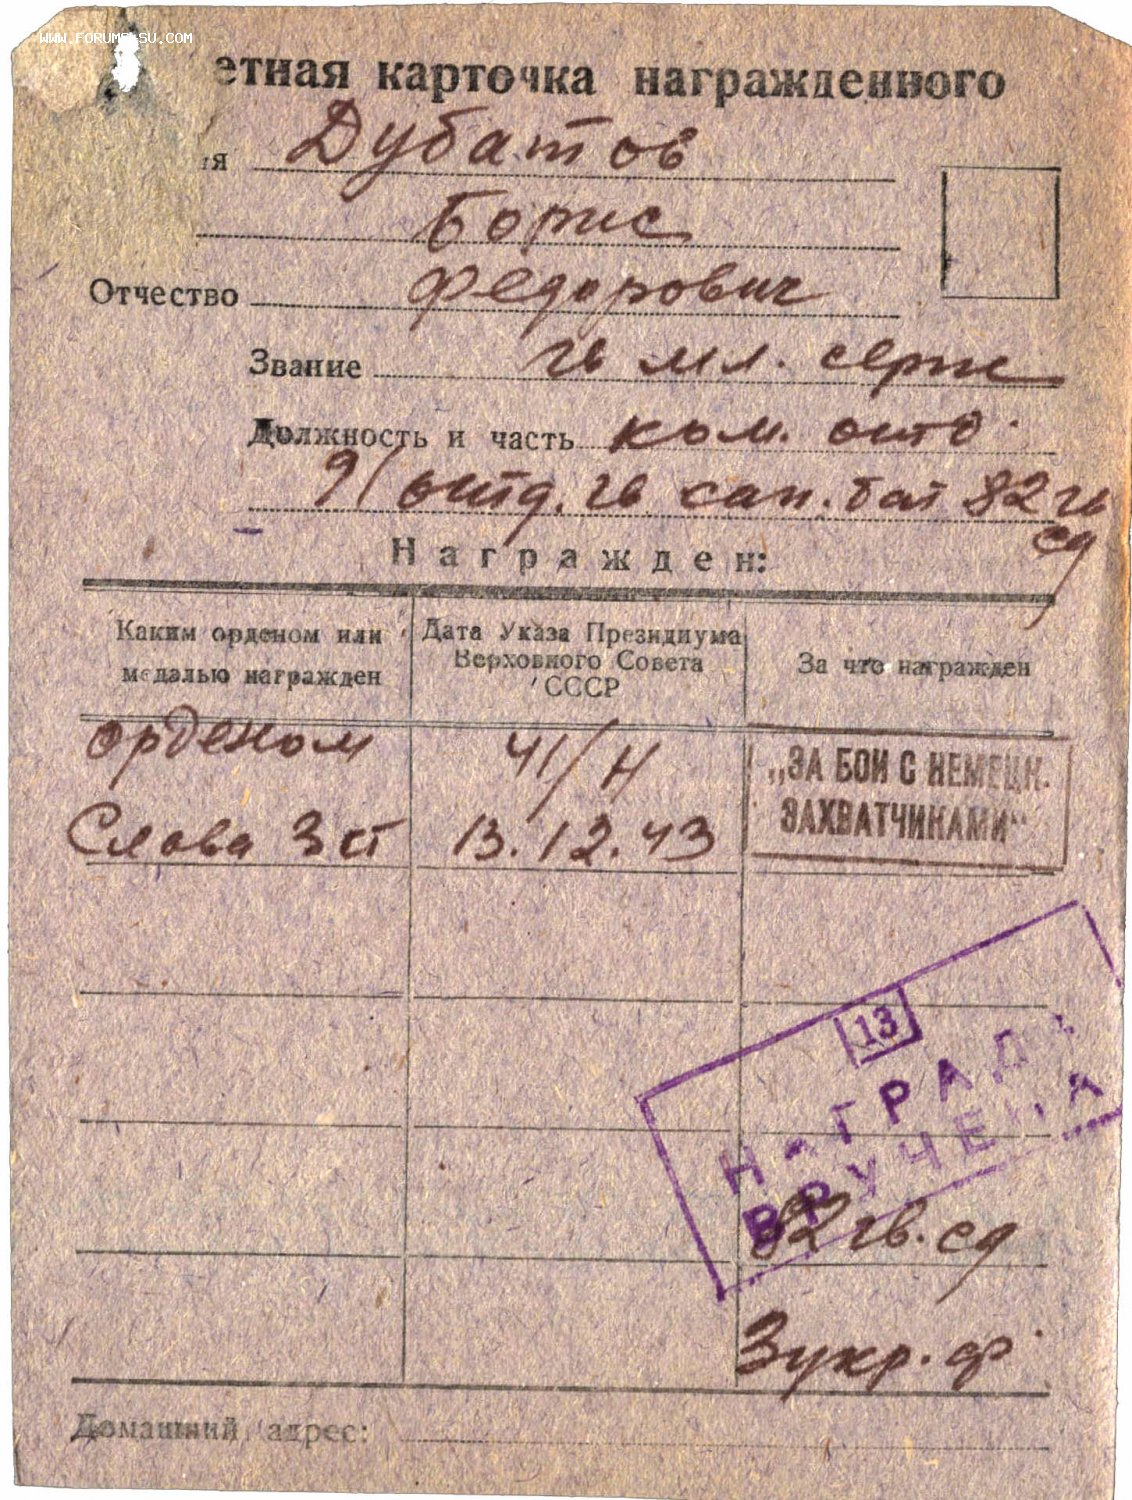 WWW.FORUMSSSU.COM
етная карточка награжденного
ия Дубатов
Борис
Отчество Федорович
Звание гв мл. серж
Должность и часть ком. отд.
91 отд. гв сап. бат 82 гв
сд
Награжден:
Каким орденом или медалью награжден
Дата Указа Президиума Верховного Совета СССР
За что награжден
орденом
Слава 3 ст
41/н
13.12.43
„ЗА БОИ С НЕМЕЦК.
ЗАХВАТЧИКАМИ“
13
НАГРАДА
ВРУЧЕНА
82 гв. сд
3 укр. ф.
Домашний адрес: